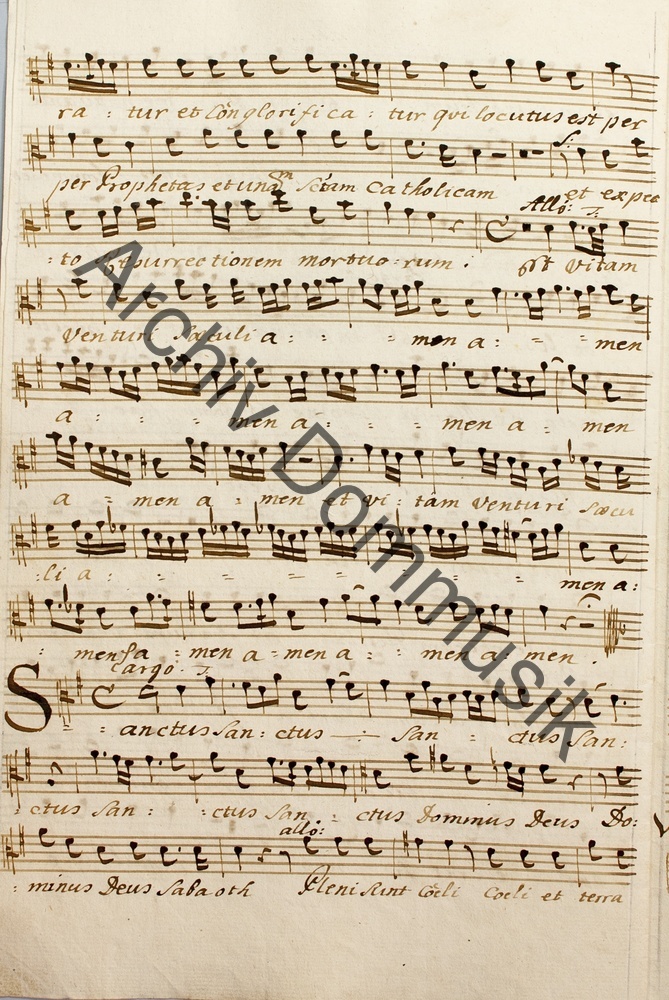 ra : tur et conglorifica : tur qui locutus est per
per Prophetas et unam Sctam Catholicam et expec
Allo:
: to Resurrectionem mortuo : rum : Et Vitam
Venturi Saeculi a : : : men a : = = men
a : : : men a : : : men a : men
a = men a = men et vi : tam Venturi Saecu
: li a : = = = = = = = men a :
men a = men a = men a : men a : men .
Largo .
Sanctus San : ctus San = ctus San :
ctus San : : ctus San = ctus Dominus Deus Do:
allo:
: minus Deus Sabaoth Pleni Sunt Coeli Coeli et terra
Archiv Dommusik